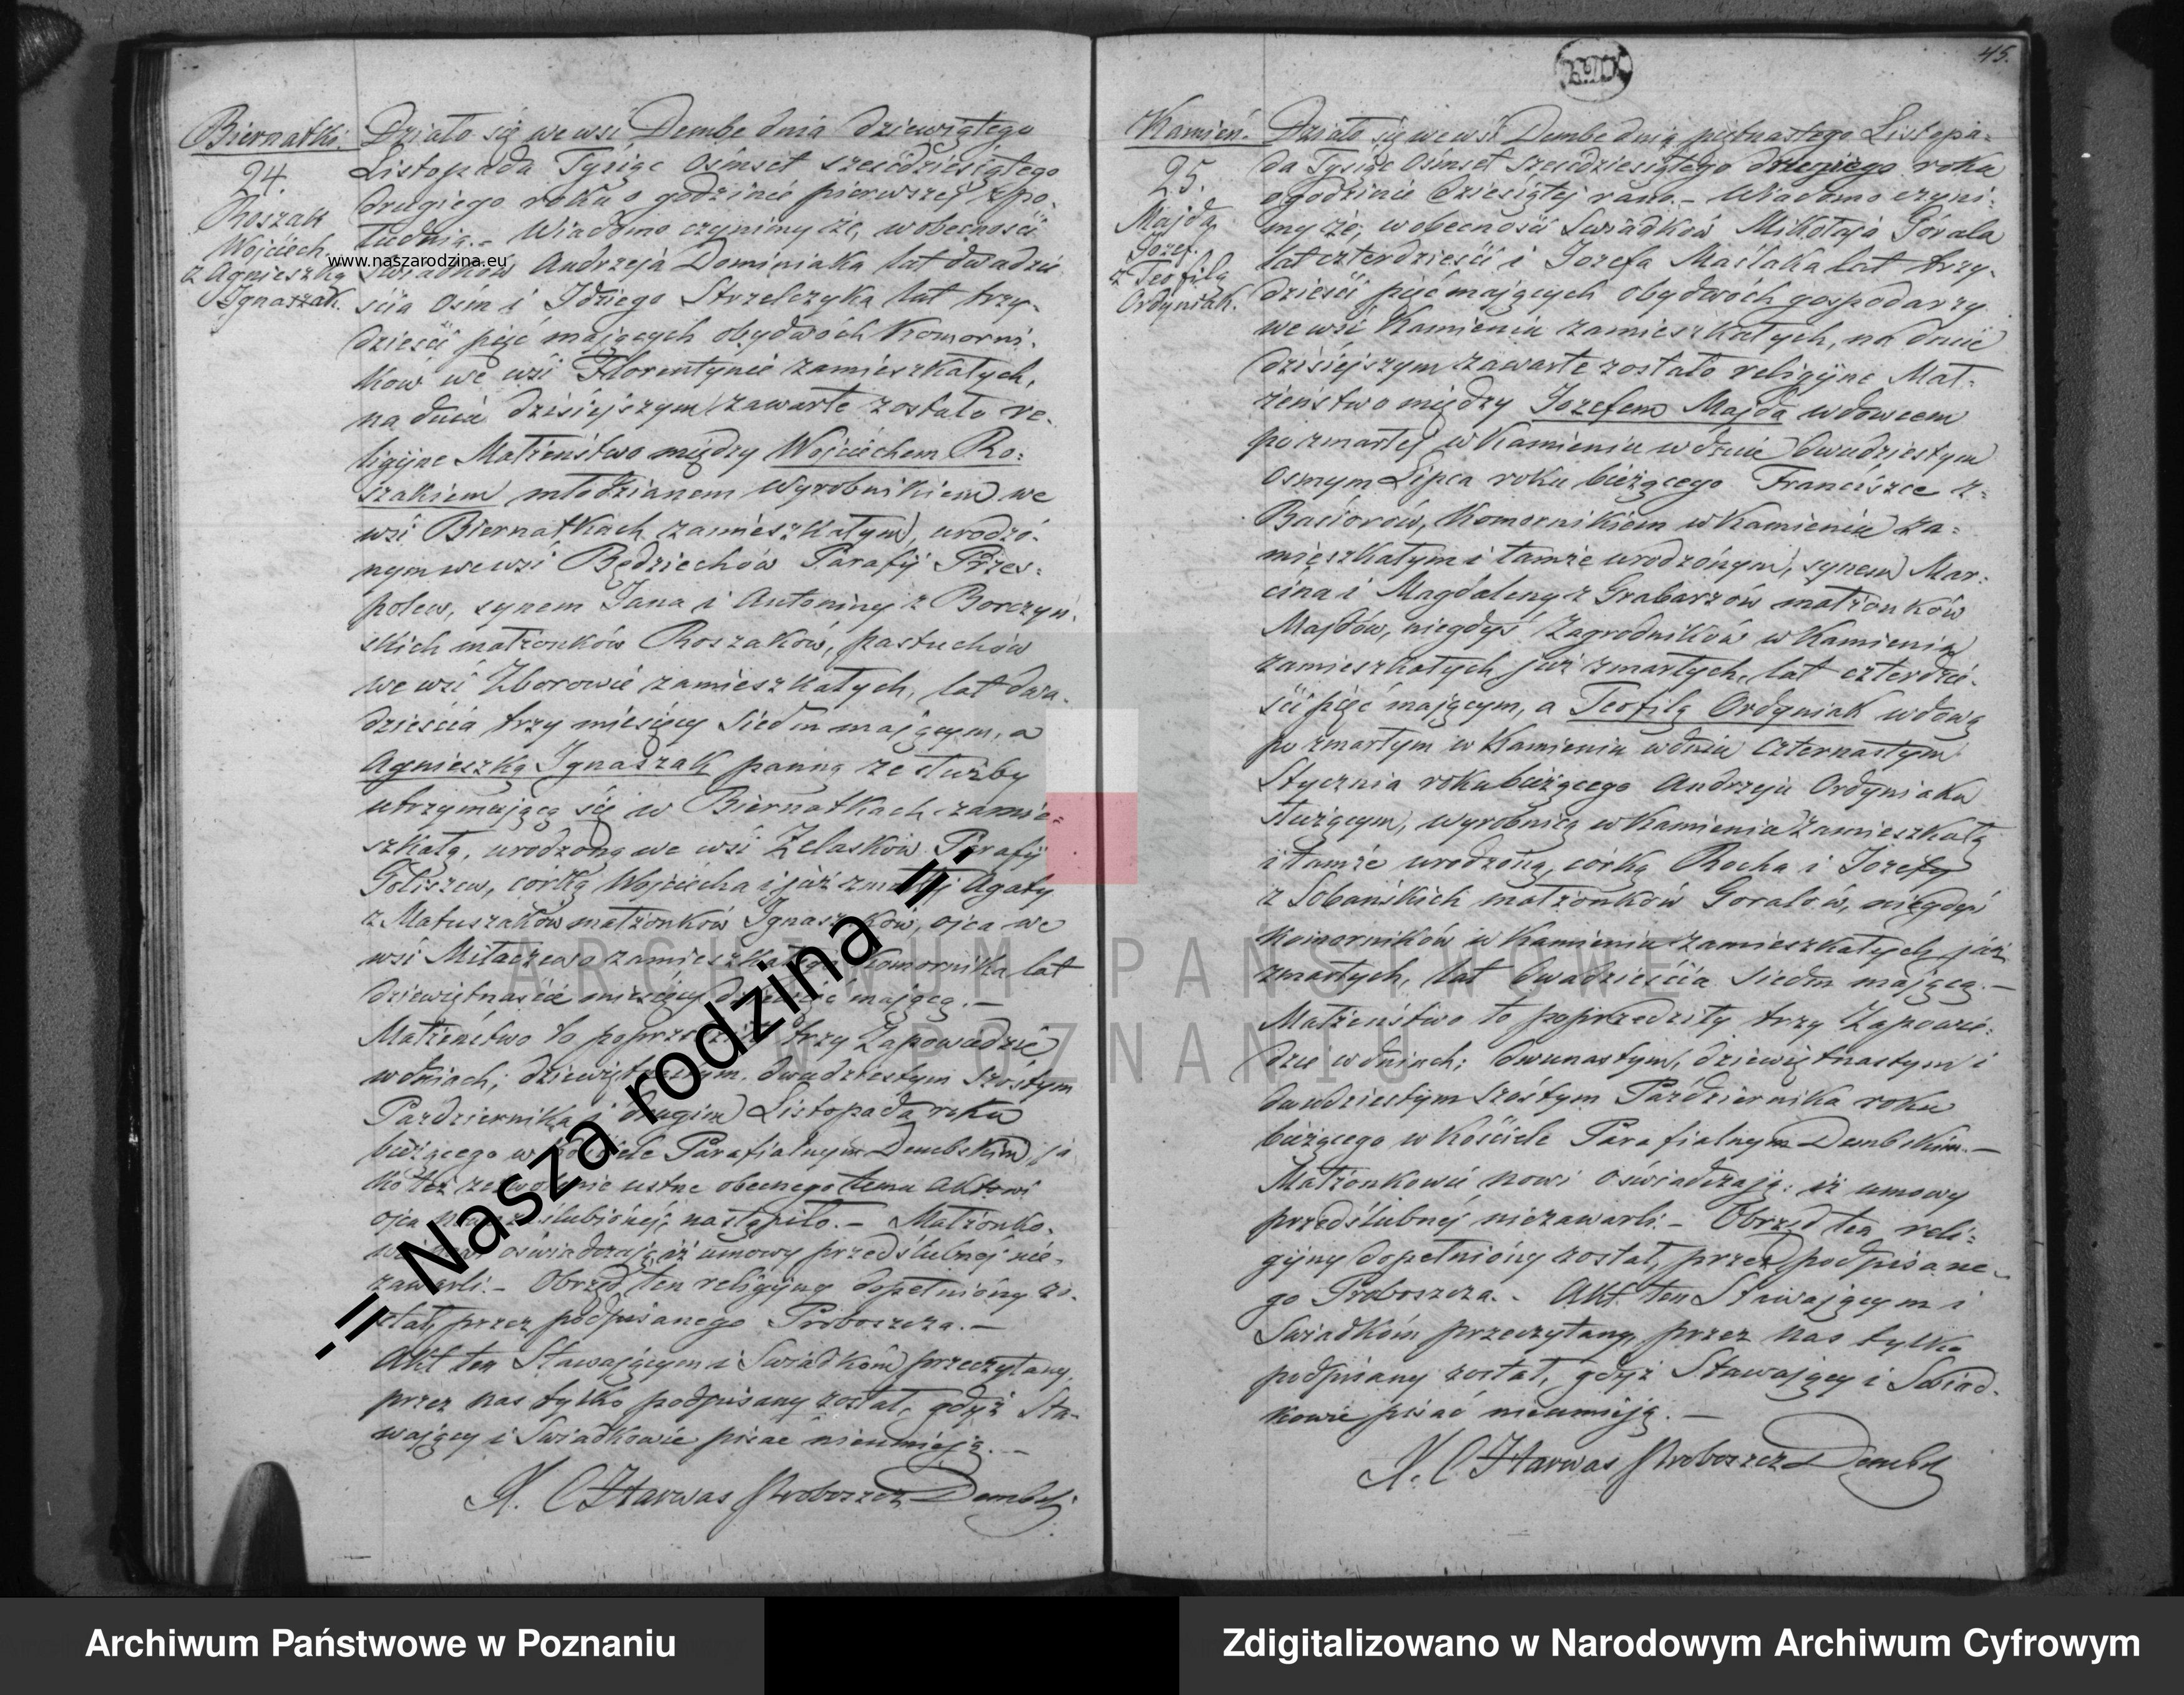 45.
Biernatki.
24.
Roszak
Wojciech
z Agnieszką
Ignaszak.
Działo się we wsi Dembe dnia dziewiątego
Listopada Tysiąc Ośmset sześćdziesiątego
drugiego roku o godzinie pierwszej z po-
łudnia.- Wiadomo czynimy że, w obecności
świadków Andrzeja Dominiaka lat dwadzie
ścia ośm i Idziego Strzelczyka lat trzy-
dzieści pięć mających obydwóch Komorni-
ków we wsi Florentynie zamieszkałych,
na dniu dzisiejszym zawarte zostało re-
ligijne Małżeństwo między Wojciechem Ro-
szakiem młodzianem wyrobnikiem we
wsi Biernatkach zamieszkałym, urodzo-
nym we wsi Będziechów Parafij Przes-
polew, synem Jana i Antoniny z Borczyń-
skich małżonków Roszaków, pastuchów
we wsi Zborowie zamieszkałych, lat dwa-
dzieścia trzy miesięcy siedm mającym, a
Agnieszką Ignaszak panną ze służby
utrzymującą się w Biernatkach zamie-
szkałą, urodzoną we wsi Żelasków Parafij
Goliszew, córką Wojciecha i już zmarłej Agaty
z Matuszaków małżonków Ignaszaków, ojca we
wsi Miłaczewo zamieszkałego Komornika lat
dziewiętnaście miesięcy mającą.-
Małżeństwo to poprzedziły trzy Zapowiedzie
w dniach; dziewiętnastym, dwudziestym szóstym
Pazdziernika i drugim Listopada roku
bieżącego w Kościele Parafialnym Dembskim, ja
ko też zezwolenie ustne obecnego temu Aktowi
ojca nowozaślubionej, nastąpiło.- Małżonko-
wie nowi oświadczają iż umowy przedślubnej nie-
zawarli.- Obrzęd ten religijny dopełniony zo-
stał, przez podpisanego Proboszcza.-
Akt ten Stawającym i Swiadkom przeczytany,
przez nas tylko podpisany został, gdyż Sta-
wający i Swiadkowie pisać nieumieją.-
X. C Harwas Proboszcz Dembski
Kamień.
25.
Majda
Jozef.
z Teofilą
Ordyniak.
Działo się we wsi Dembe dnia piętnastego Listopa-
da Tysiąc Ośmset sześćdziesiątego drugiego roku
o godzinie dziesiątej rano.- Wiadomo czyni-
my że, w obecności Swiadków Mikołaja Górala
lat czterdzieści i Jozefa Maślaka lat trzy-
dzieści pięć mających obydwóch gospodarzy
we wsi Kamieniu zamieszkałych, na dniu
dzisiejszym zawarte zostało religijne Mał-
żeństwo między Jozefem Majda wdowcem
po zmarłej w Kamieniu w dniu dwudziestym
osmym Lipca roku bieżącego Franciszce z-
Basiorów, Komornikiem w Kamieniu za-
mieszkałym i tamże urodzonym, synem Mar-
cina i Magdaleny z Grabarzów małżonków
Majdów, niegdyś Zagrodników w Kamieniu
zamieszkałych już zmarłych, lat czterdzie-
ści pięć mającym, a Teofilą Ordyniak wdową
po zmarłym w Kamieniu w dniu czternastym
Stycznia roku bieżącego Andrzeju Ordyniaku
służącym, wyrobnicą w Kamieniu zamieszkałą
i tamże urodzoną, córką Rocha i Jozefy
z Sobańskich małżonków Goralów, niegdyś
komorników w Kamieniu zamieszkałych już
zmarłych, lat dwadzieścia siedm mającą.-
Małżeństwo to poprzedziły trzy Zapowie-
dzie w dniach; dwunastym, dziewiętnastym i
dwudziestym szóstym Pazdziernika roku
bieżącego w Kościele Parafialnym Dembskim.-
Małżonkowie nowi oświadczają: iż umowy
przedślubnej niezawarli.- Obrzęd ten reli-
gijny dopełniony został, przez podpisane-
go Proboszcza.- Akt ten Stawającym i
Swiadkom przeczytany, przez nas tylko
podpisany został, gdyż Stawający i Swiad-
kowie pisać nieumieją.-
X. C Harwas Proboszcz Dembski
www.naszarodzina.eu
-= Nasza rodzina =-
ARCHIWUM PAŃSTWOWE
W POZNANIU
Archiwum Państwowe w Poznaniu
Zdigitalizowano w Narodowym Archiwum Cyfrowym